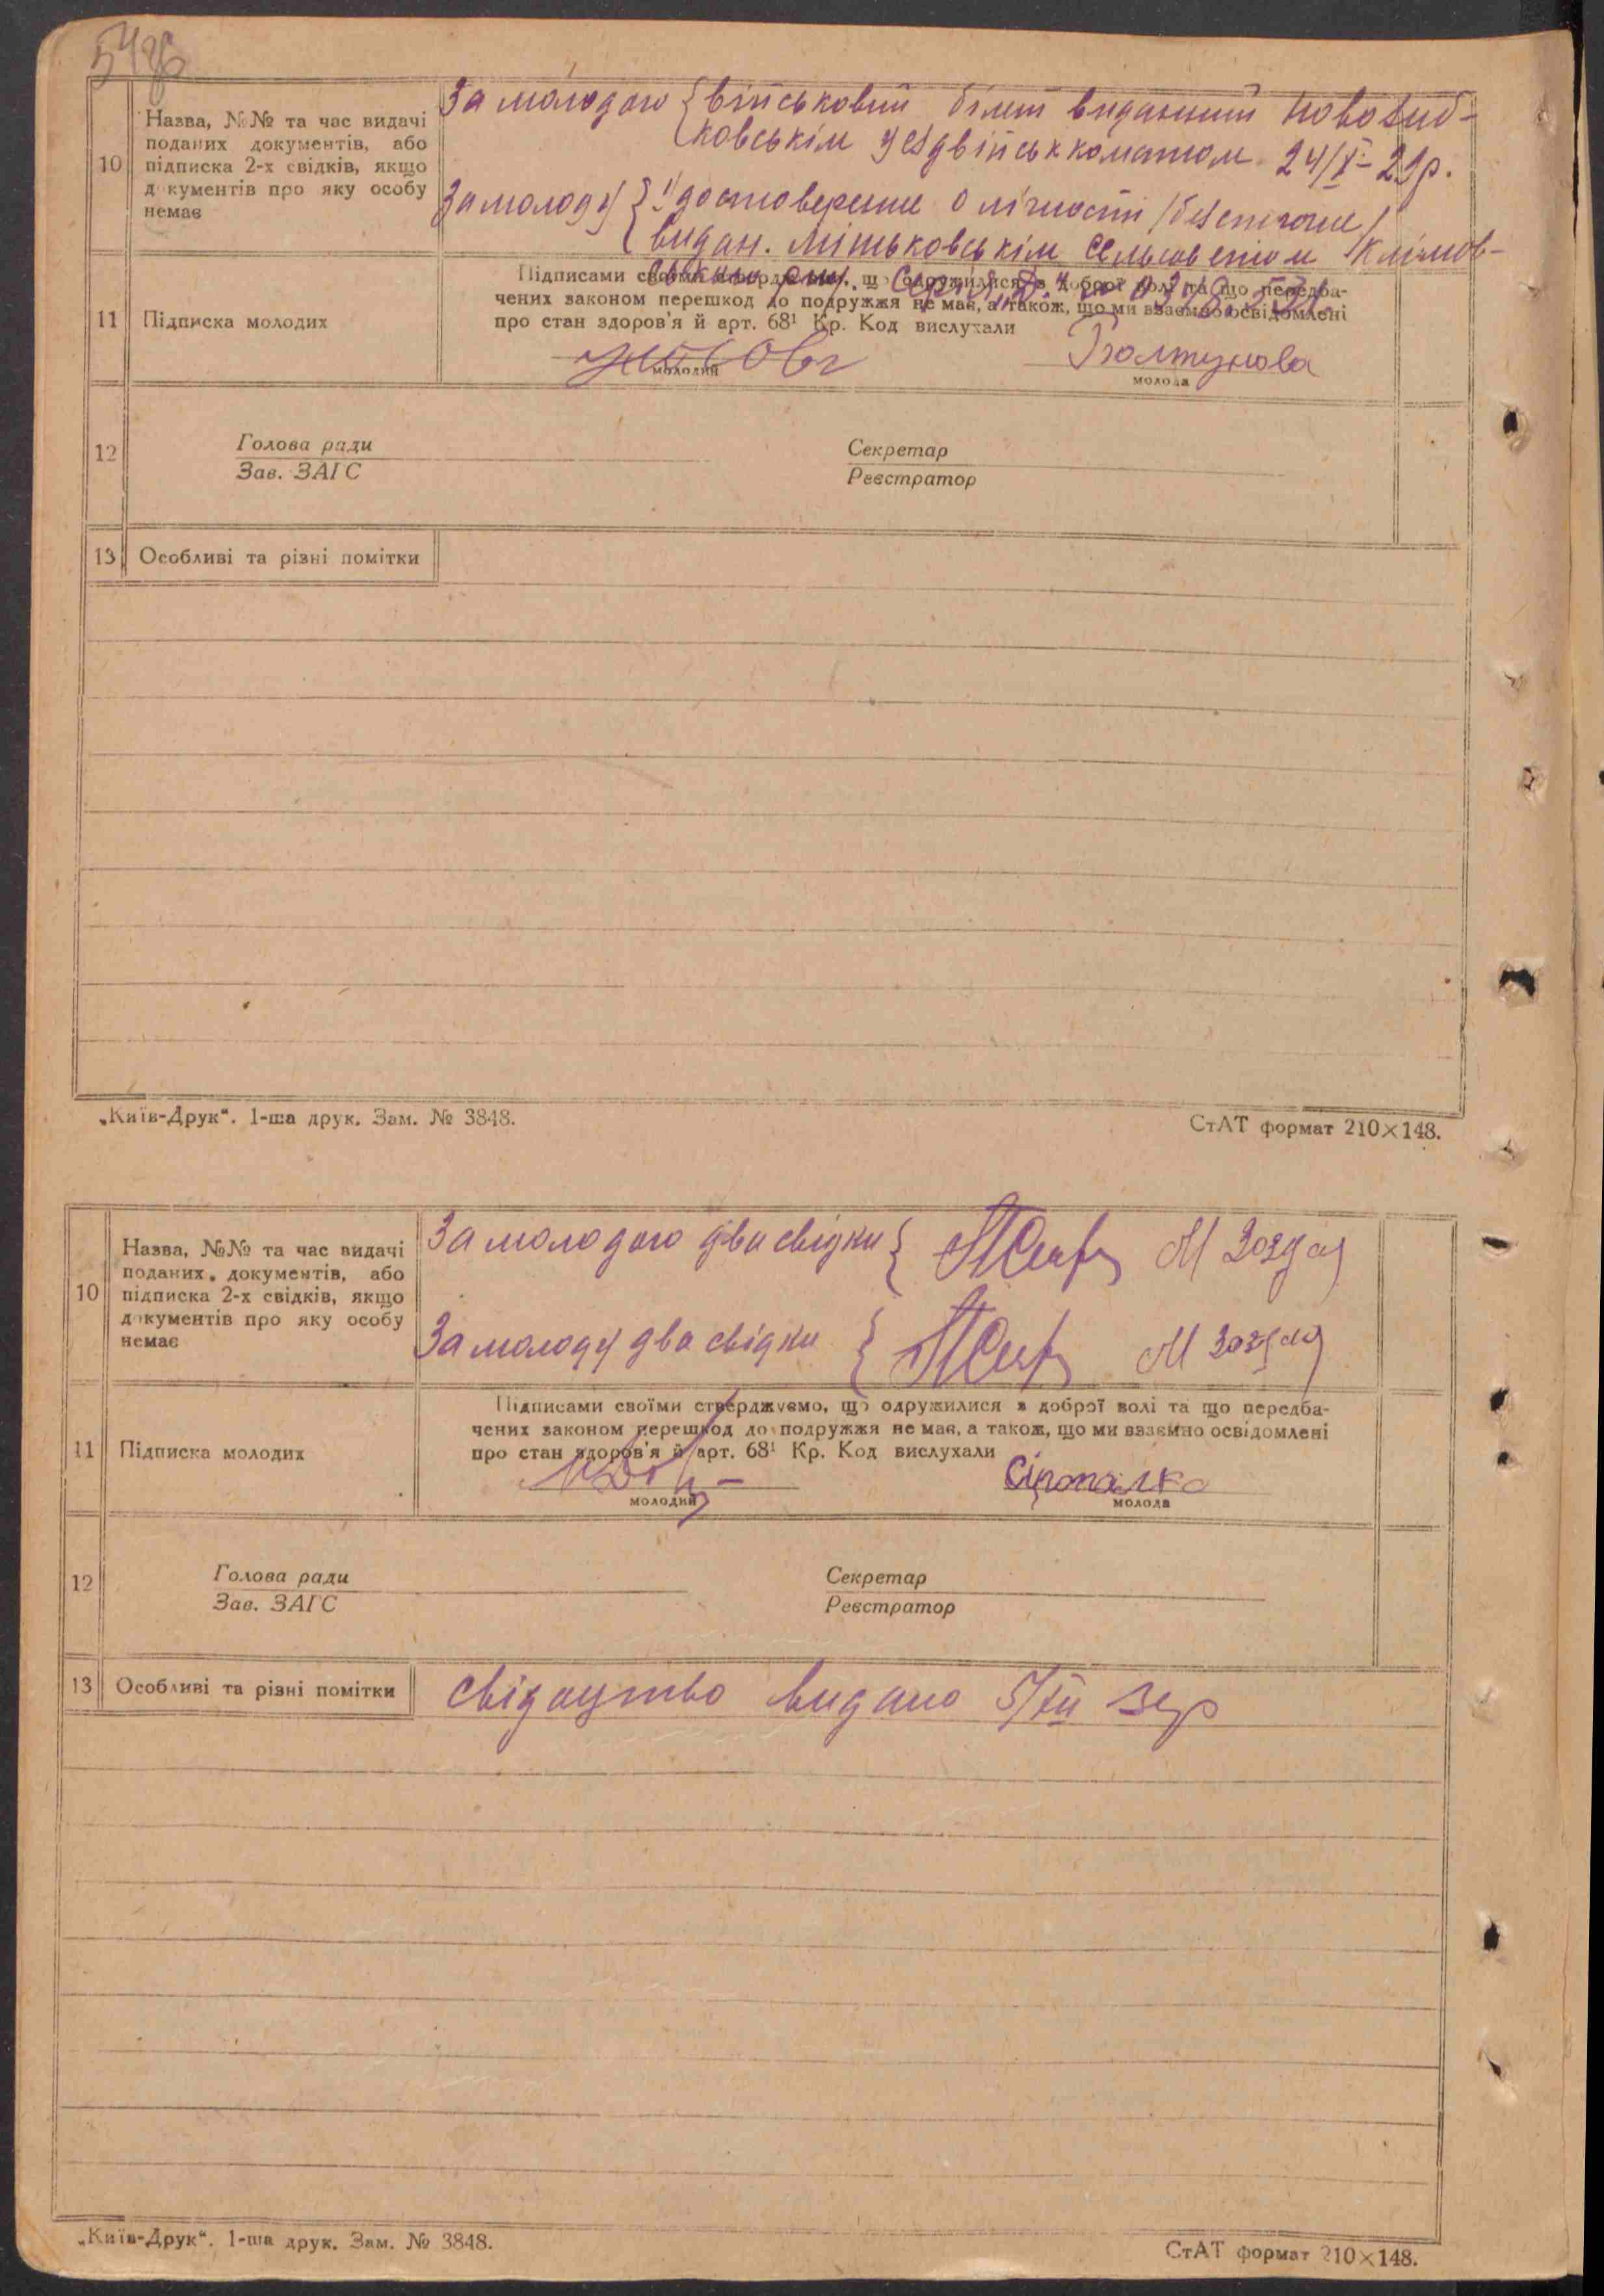 За молодого { військовий білет виданный Новозиб-
10 Назва, №№ та час видачі поданих документів, або підписка 2-х свідків, якщо документів про яку особу немає
ковськім уездвійськкоматом 24/X-29р.
За молоду { Удостоверение о лічности
видан. сельсоветом Клімов-
11 Підписка молодих
Підписами своїми стверджуємо, що одружилися з доброї волі та що передба-
чених законом перешкод до подружжя не має, а також, що ми взаємно освідомлені
про стан здоров'я й арт. 68¹ Кр. Код вислухали
Болтунова
молодий молода
12 Голова ради Секретар
Зав. ЗАГС Реєстратор
13 Особливі та різні помітки
„Київ-Друк“. 1-ша друк. Зам. № 3848. СтАТ формат 210×148.
За молодого два свідки {
10 Назва, №№ та час видачі поданих документів, або підписка 2-х свідків, якщо документів про яку особу немає
За молоду два свідки {
Підписами своїми стверджуємо, що одружилися з доброї волі та що передба-
чених законом перешкод до подружжя не має, а також, що ми взаємно освідомлені
11 Підписка молодих
про стан здоров'я й арт. 68¹ Кр. Код вислухали
молодий молода
12 Голова ради Секретар
Зав. ЗАГС Реєстратор
13 Особливі та різні помітки свідоцтво видано 5/XII
„Київ-Друк“. 1-ша друк. Зам. № 3848. СтАТ формат 210×148.